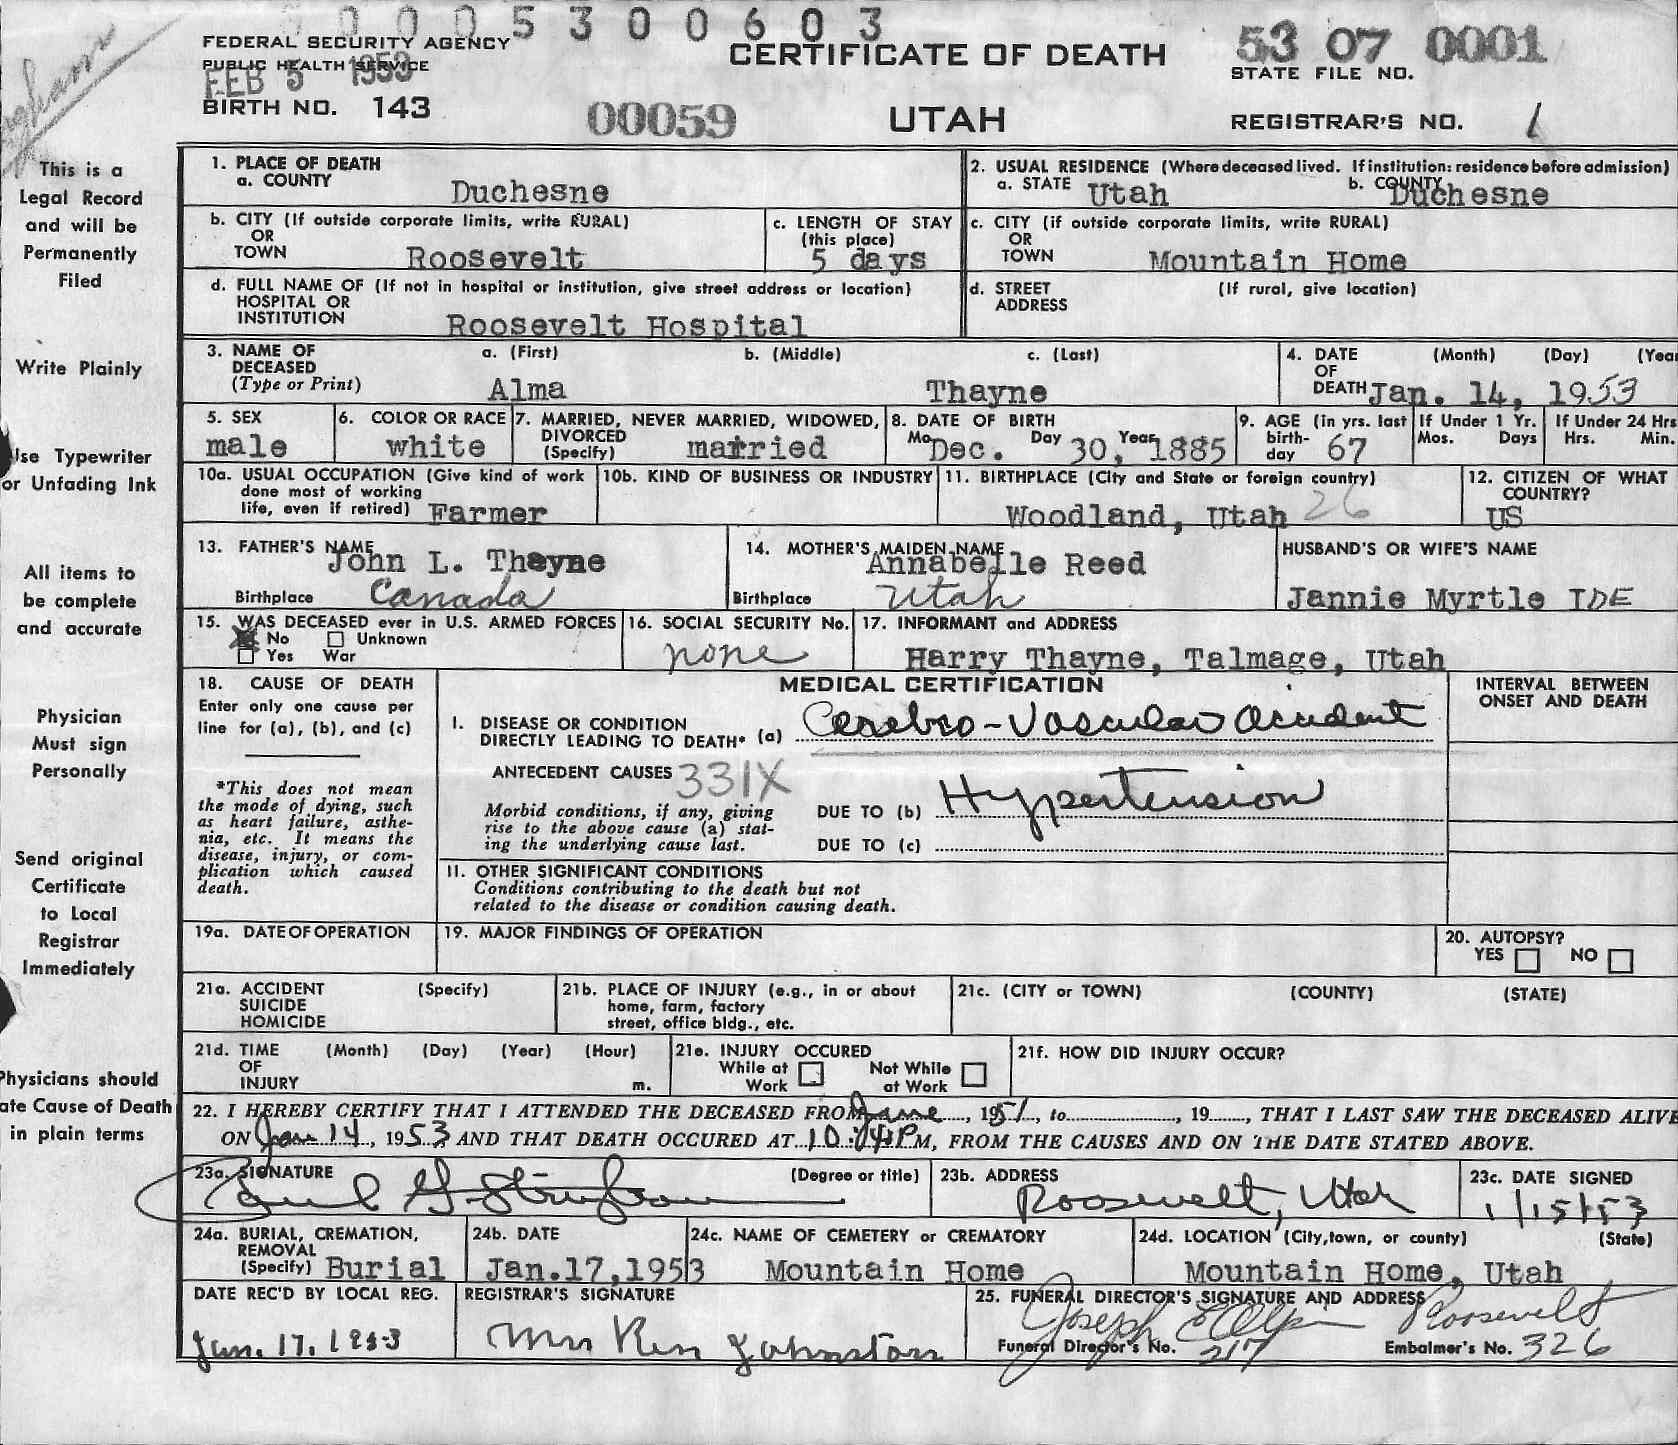 0 0 0 5 3 0 0 6 0 3
FEDERAL SECURITY AGENCY
PUBLIC HEALTH SERVICE
FEB 5 1953
BIRTH NO. 143
00059
CERTIFICATE OF DEATH
UTAH
53 07 0001
STATE FILE NO.
REGISTRAR'S NO. 1
This is a
Legal Record
and will be
Permanently
Filed
Write Plainly
Use Typewriter
or Unfading Ink
All items to
be complete
and accurate
Physician
Must sign
Personally
Send original
Certificate
to Local
Registrar
Immediately
Physicians should
ate Cause of Death
in plain terms
1. PLACE OF DEATH
a. COUNTY Duchesne
2. USUAL RESIDENCE (Where deceased lived. If institution: residence before admission)
a. STATE Utah b. COUNTY Duchesne
b. CITY (If outside corporate limits, write RURAL)
OR
TOWN Roosevelt
c. LENGTH OF STAY
(this place)
5 days
c. CITY (if outside corporate limits, write RURAL)
OR
TOWN Mountain Home
d. FULL NAME OF (If not in hospital or institution, give street address or location)
HOSPITAL OR
INSTITUTION Roosevelt Hospital
d. STREET (If rural, give location)
ADDRESS
3. NAME OF a. (First) b. (Middle) c. (Last)
DECEASED
(Type or Print) Alma Thayne
4. DATE (Month) (Day) (Year
OF
DEATH Jan. 14, 1953
5. SEX
male
6. COLOR OR RACE
white
7. MARRIED, NEVER MARRIED, WIDOWED,
DIVORCED
(Specify) married
8. DATE OF BIRTH
Mo. Day Year
Dec. 30, 1885
9. AGE (in yrs. last
birth-
day 67
If Under 1 Yr.
Mos. Days
If Under 24 Hrs
Hrs. Min.
10a. USUAL OCCUPATION (Give kind of work
done most of working
life, even if retired) Farmer
10b. KIND OF BUSINESS OR INDUSTRY
11. BIRTHPLACE (City and State or foreign country)
Woodland, Utah 26
12. CITIZEN OF WHAT
COUNTRY?
US
13. FATHER'S NAME
John L. Thayne
Birthplace Canada
14. MOTHER'S MAIDEN NAME
Annabelle Reed
Birthplace Utah
HUSBAND'S OR WIFE'S NAME
Jannie Myrtle IDE
15. WAS DECEASED ever in U.S. ARMED FORCES
No Unknown
Yes War
16. SOCIAL SECURITY No.
none
17. INFORMANT and ADDRESS
Harry Thayne, Talmage, Utah
18. CAUSE OF DEATH
Enter only one cause per
line for (a), (b), and (c)
*This does not mean
the mode of dying, such
as heart failure, asthe-
nia, etc. It means the
disease, injury, or com-
plication which caused
death.
MEDICAL CERTIFICATION
I. DISEASE OR CONDITION
DIRECTLY LEADING TO DEATH* (a) Cerebro-Vascular Accident
ANTECEDENT CAUSES 331X
Morbid conditions, if any, giving
rise to the above cause (a) stat-
ing the underlying cause last.
DUE TO (b) Hypertension
DUE TO (c)
11. OTHER SIGNIFICANT CONDITIONS
Conditions contributing to the death but not
related to the disease or condition causing death.
INTERVAL BETWEEN
ONSET AND DEATH
19a. DATE OF OPERATION
19. MAJOR FINDINGS OF OPERATION
20. AUTOPSY?
YES NO
21a. ACCIDENT (Specify)
SUICIDE
HOMICIDE
21b. PLACE OF INJURY (e.g., in or about
home, farm, factory
street, office bldg., etc.
21c. (CITY or TOWN) (COUNTY) (STATE)
21d. TIME (Month) (Day) (Year) (Hour)
OF
INJURY m.
21e. INJURY OCCURED
While at Work
Not While at Work
21f. HOW DID INJURY OCCUR?
22. I HEREBY CERTIFY THAT I ATTENDED THE DECEASED FROM June, 1951, to, 19, THAT I LAST SAW THE DECEASED ALIVE
ON Jan 14, 1953 AND THAT DEATH OCCURED AT 10: P M, FROM THE CAUSES AND ON THE DATE STATED ABOVE.
23a. SIGNATURE (Degree or title)
Paul G. Stringham
23b. ADDRESS
Roosevelt, Utah
23c. DATE SIGNED
1/15/53
24a. BURIAL, CREMATION,
REMOVAL
(Specify) Burial
24b. DATE
Jan.17,1953
24c. NAME OF CEMETERY or CREMATORY
Mountain Home
24d. LOCATION (City, town, or county) (State)
Mountain Home, Utah
DATE REC'D BY LOCAL REG.
Jan. 17. 1953
REGISTRAR'S SIGNATURE
Mrs Ken Johnston
25. FUNERAL DIRECTOR'S SIGNATURE AND ADDRESS
Joseph Roosevelt
Funeral Director's No. 217 Embalmer's No. 326